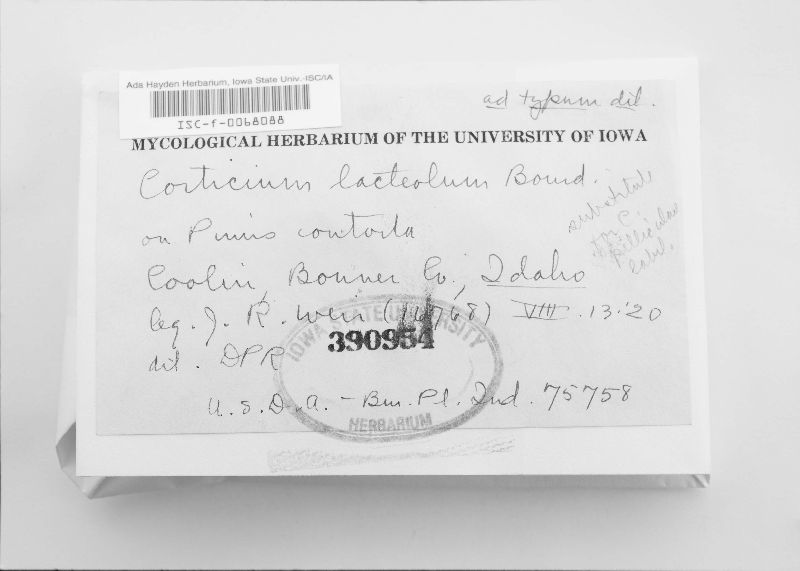 Ada Hayden Herbarium, Iowa State Univ.-ISC/IA
ISC-f-0068088
ad typum dil.
MYCOLOGICAL HERBARIUM OF THE UNIVERSITY OF IOWA
Corticium lacteolum Bourd.
on Pinus contorta
substitute
for C.
pelliculare
label.
Coolin, Bonner Co., Idaho
leg. J. R. Weir (16768) VIII.13.'20
IOWA STATE UNIVERSITY
390954
dil. DPR
U.S.D.A. - Bur. Pl. Ind. 75758
HERBARIUM